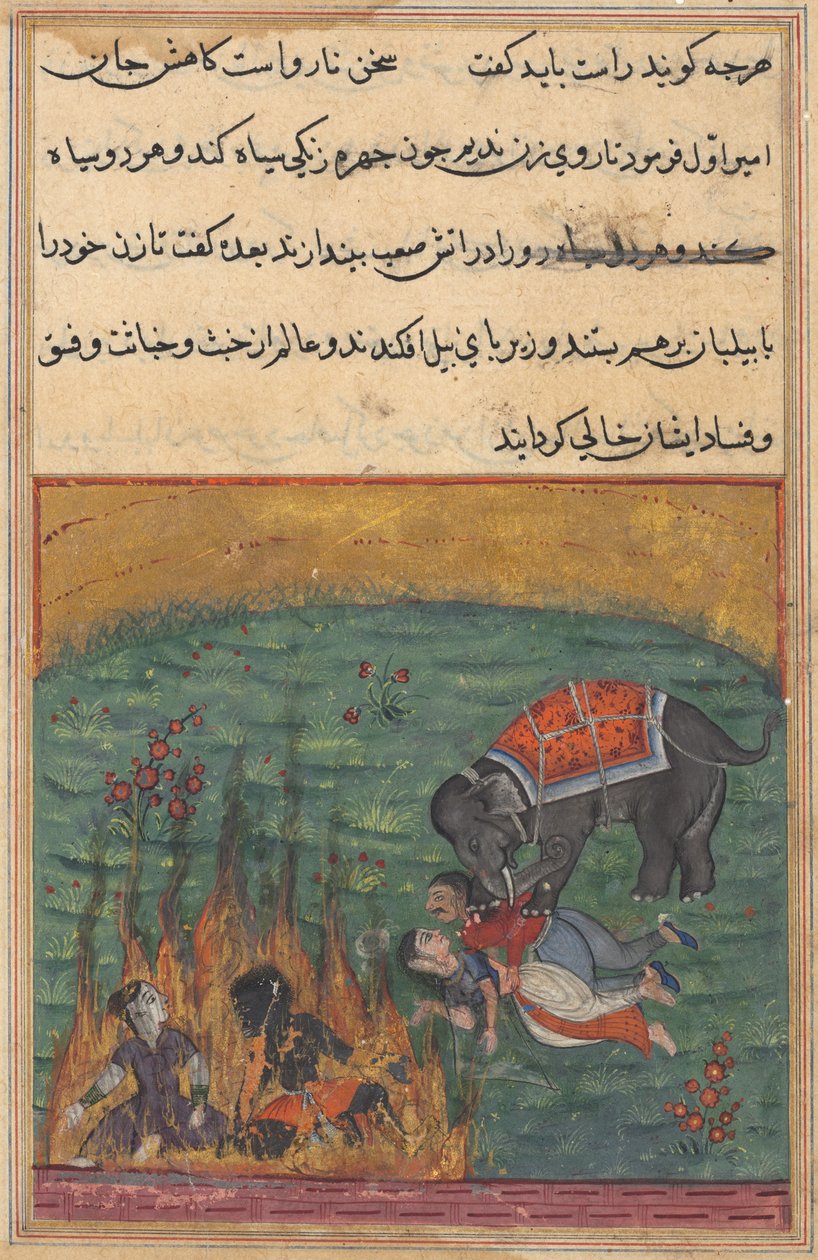 هرجه کویند راست باید کفت سخن ناروا است کاهش جان
امیر اوّل فرمود تا روی زن ندیم جون جهرهٔ زنکی سیاه کند و هر دو سیاه
کند و هر دو سیاه رو را در آتش صعب بیندازند بعده کفت تا زن خود را
با بیلبان برهم بستند و زیر بای بیل افکندند و عالم از خبث و خباثت و فسق
و فساد ایشان خالی کردانیند